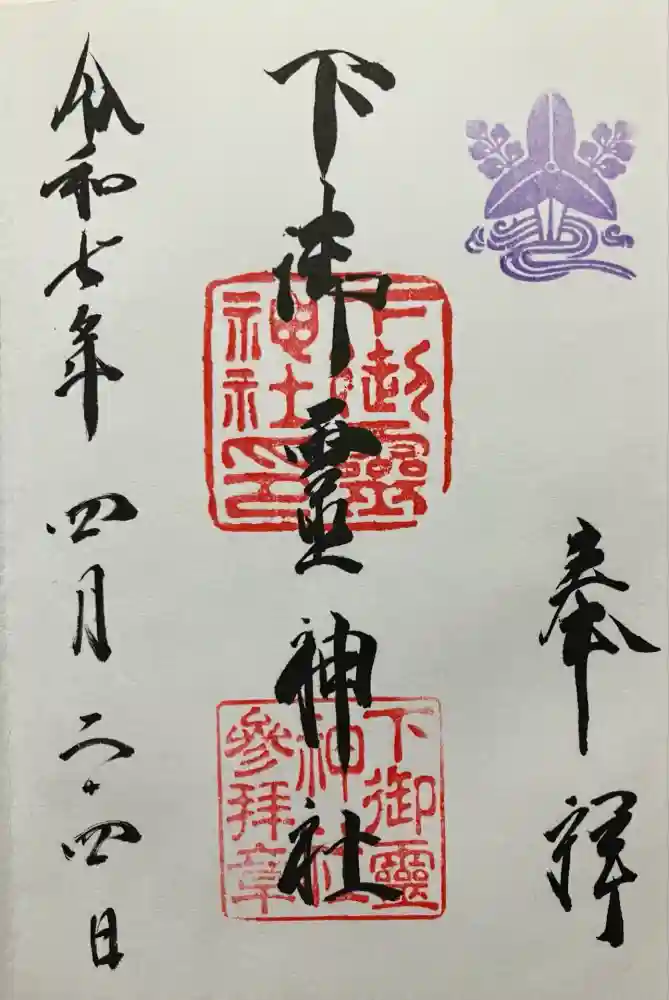 奉拝
下御靈神社
下御靈
神社印
下御靈
神社
參拜章
令和七年 四月二十四日